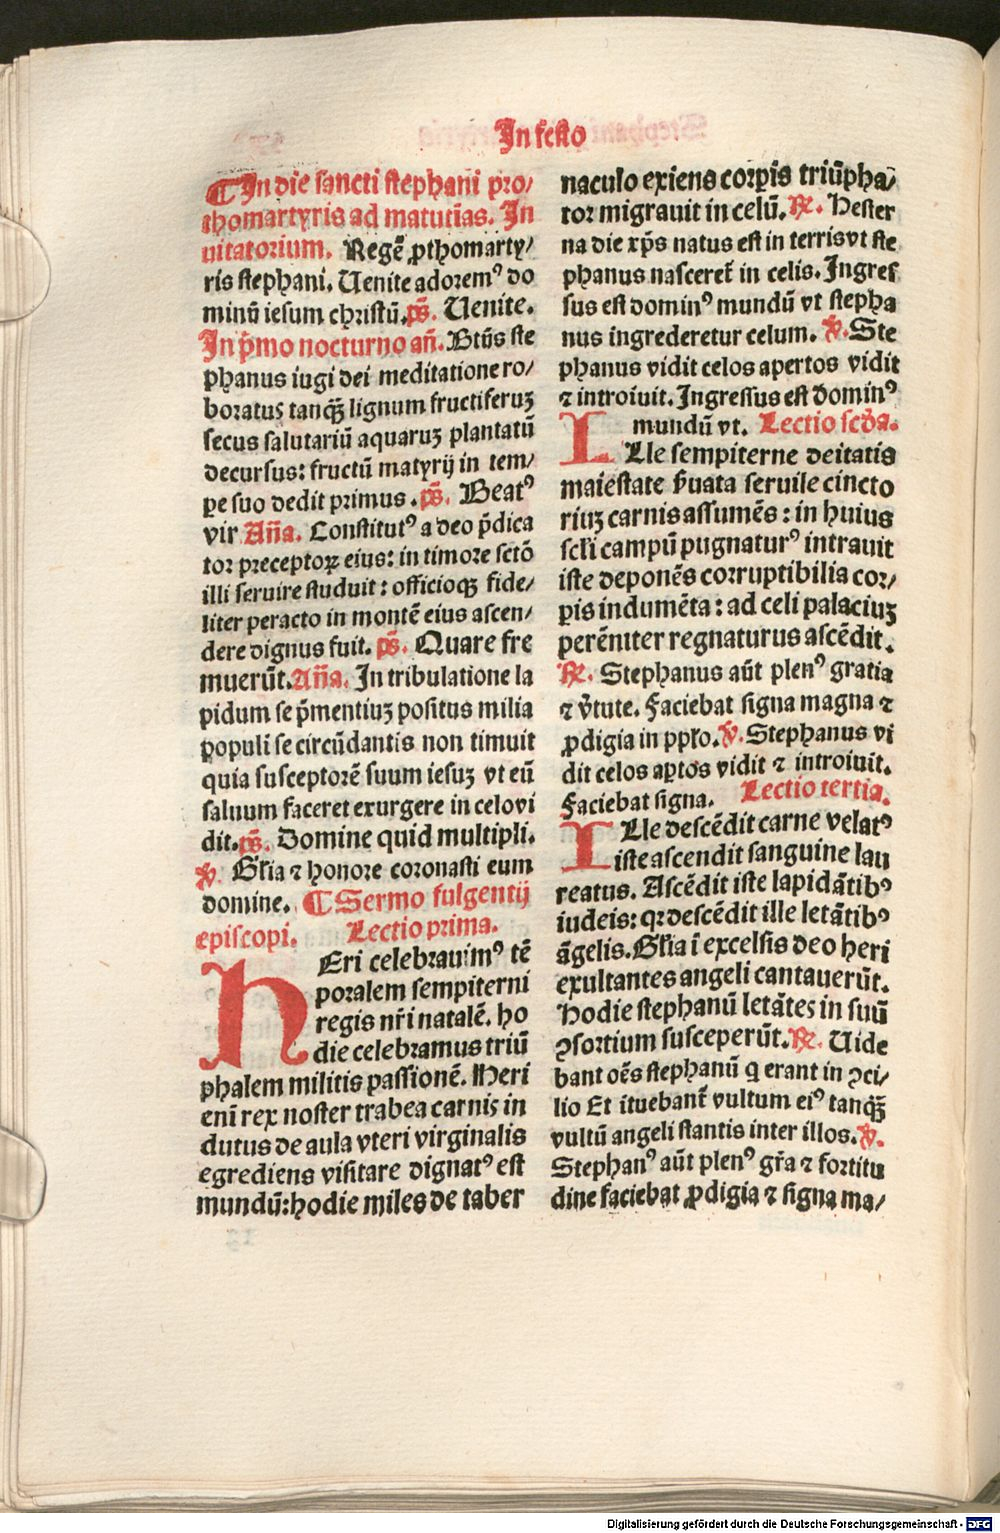 In festo
¶ In die sancti stephani pro/
thomartyris ad matuti̅as. In
uitatorium. Rege̅ ꝓthomarty/
ris stephani. Uenite adorem⁹ do
minu̅ iesum christu̅. ps̅. Uenite.
In p̅mo nocturno an̅. Btu̅s ste
phanus iugi dei meditatione ro/
boratus tanqꝫ̅ lignum fructiferuꝫ
secus salutariu̅ aquaruꝫ plantatu̅
decursus: fructu̅ matyrij in tem/
pe suo dedit primus. ps̅. Beat⁹
vir An̅a. Constitut⁹ a deo p̅dica
tor preceptoꝝ eius: in timore scto̅
illi seruire studuit: officioqꝫ fide/
liter peracto in monte̅ eius ascen/
dere dignus fuit. ps̅. Quare fre
mueru̅t. An̅a. In tribulatione la
pidum se p̅mentiuꝫ positus milia
populi se circu̅dantis non timuit
quia susceptore̅ suum iesuꝫ vt eu̅
saluum faceret exurgere in celo vi
dit. ps̅. Domine quid multipli.
℣. Gl̅ia ⁊ honore coronasti eum
domine. ¶ Sermo fulgentij
episcopi. Lectio prima.
hEri celebrauim⁹ te̅
poralem sempiterni
regis nr̅i natale̅. ho
die celebramus triu̅
phalem militis passione̅. Heri
eni̅ rex noster trabea carnis in
dutus de aula vteri virginalis
egrediens visitare dignat⁹ est
mundu̅: hodie miles de taber
naculo exiens corꝑis triu̅pha/
tor migrauit in celu̅. ℟. Hester
na die xp̅s natus est in terris vt ste
phanus nasceret̅ in celis. Ingres
sus est domin⁹ mundu̅ vt stepha
nus ingrederetur celum. ℣. Ste
phanus vidit celos apertos vidit
⁊ introiuit. Ingressus est domin⁹
mundu̅ vt. Lectio scd̅a.
ILle sempiterne deitatis
maiestate p̅uata seruile cincto
riuꝫ carnis assume̅s: in huius
scl̅i campu̅ pugnatur⁹ intrauit
iste depone̅s corruptibilia cor/
ꝑis indume̅ta: ad celi palaciuꝫ
pere̅niter regnaturus asce̅dit.
℟. Stephanus au̅t plen⁹ gratia
⁊ v̅tute. Faciebat signa magna ⁊
ꝓdigia in ppl̅o. ℣. Stephanus vi
dit celos aꝑtos vidit ⁊ introiuit.
Faciebat signa. Lectio tertia.
ILle desce̅dit carne velat⁹
iste ascendit sanguine lau
reatus. Asce̅dit iste lapida̅tib⁹
iudeis: qꝛ desce̅dit ille leta̅tib⁹
a̅gelis. Gl̅ia i̅ excelsis deo heri
exultantes angeli cantaueru̅t.
Hodie stephanu̅ leta̅tes in suu̅
ꝯsortium susceperu̅t. ℟. Uide
bant oe̅s stephanu̅ q erant in ꝯci/
lio Et ituebant̅ vultum ei⁹ tanqꝫ̅
vultu̅ angeli stantis inter illos. ℣.
Stephan⁹ au̅t plen⁹ gr̅a ⁊ fortitu
dine faciebat ꝓdigia ⁊ signa ma/
Digitalisierung gefördert durch die Deutsche Forschungsgemeinschaft - DFG